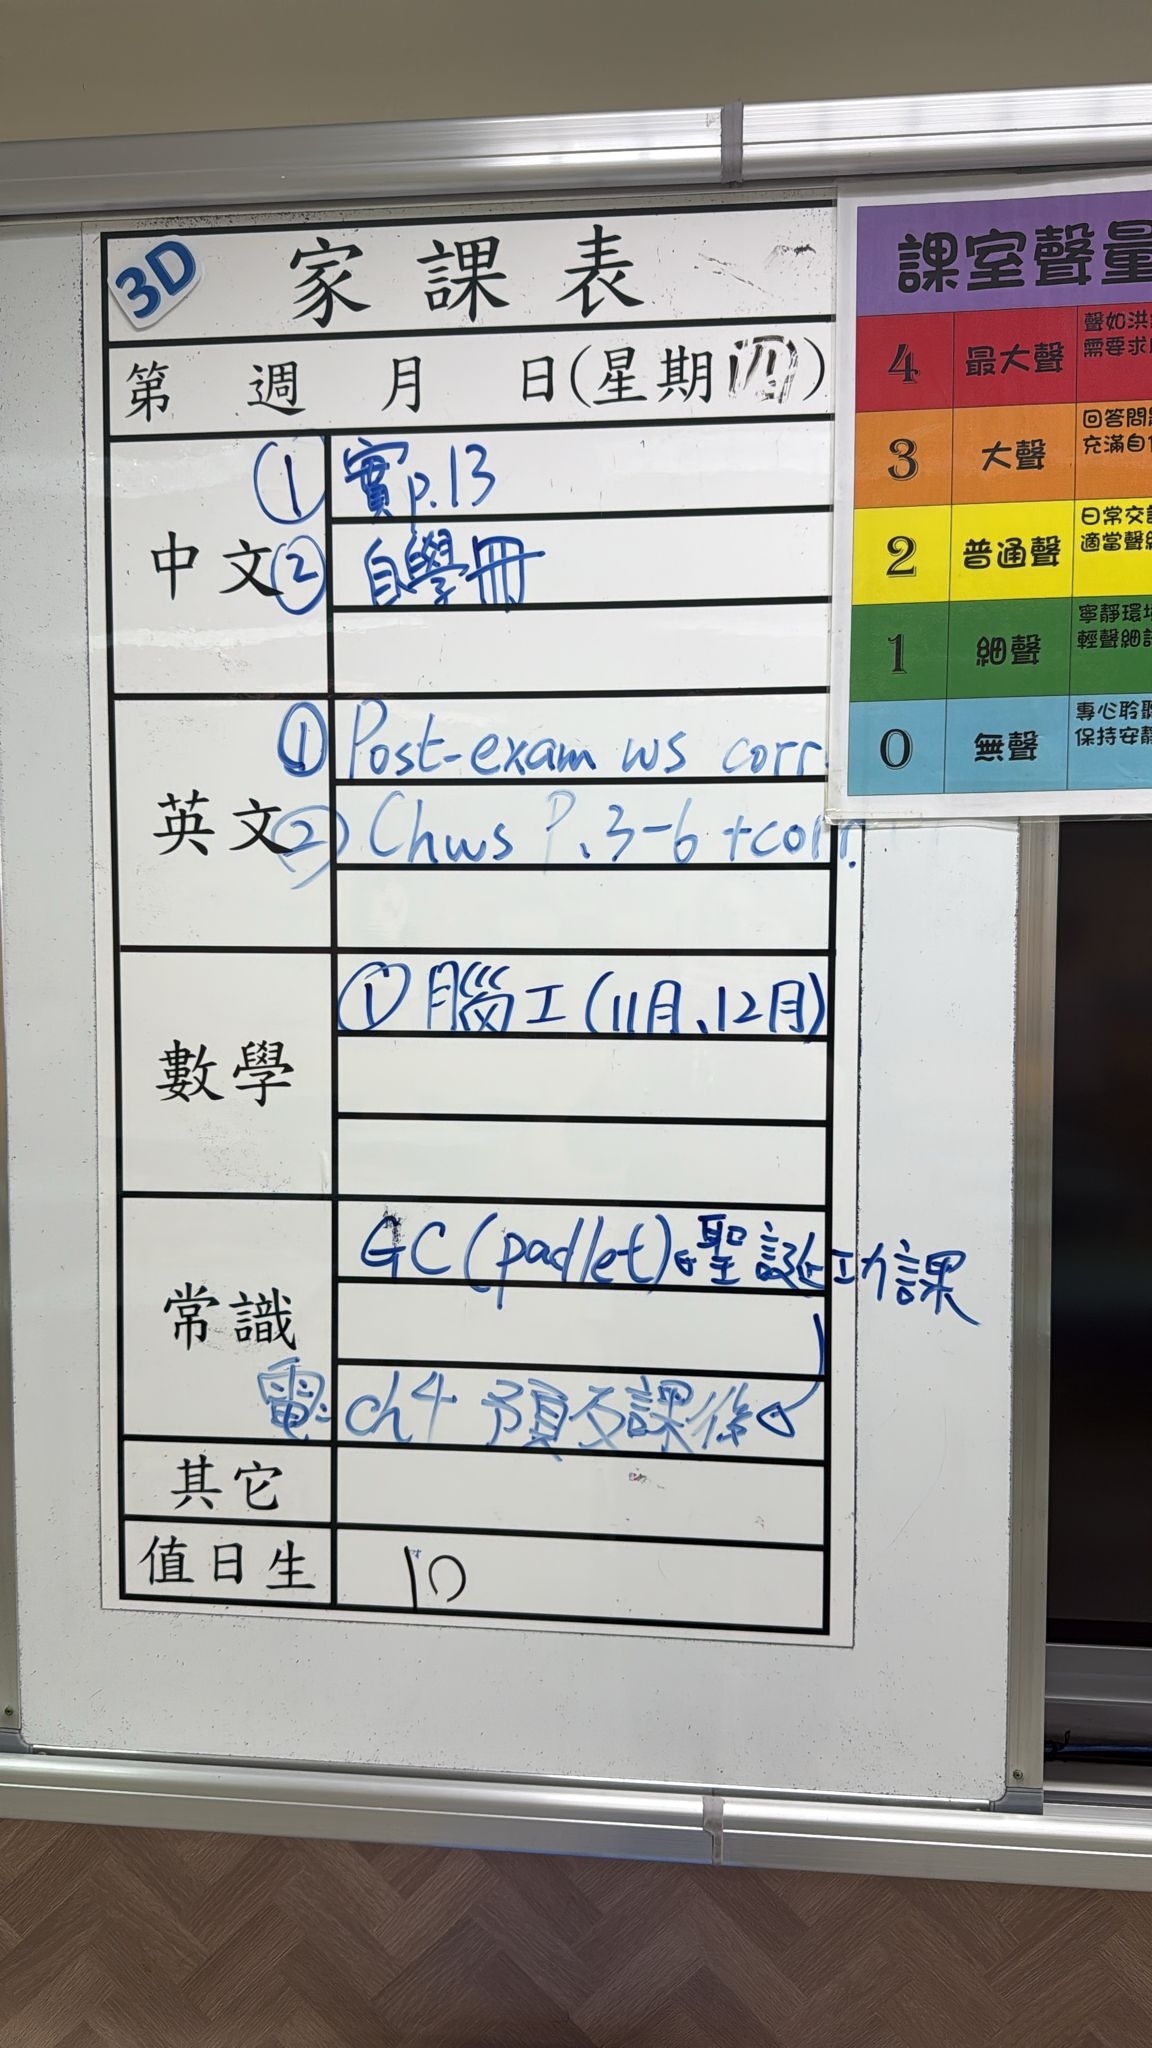 3D 家課表
第 週 月 日(星期四)
中文
① 實p.13
② 自學冊
英文
① Post-exam ws corr
② Chws P.3-6 +corr.
數學
① 腦工(11月、12月)
常識
GC (padlet) 聖誕功課
電: ch4 預及課後
其它
值日生 10
課室聲量
4 最大聲 聲如洪
需要求
3 大聲 回答問
充滿自
2 普通聲 日常交
適當聲
1 細聲 寧靜環
輕聲細
0 無聲 專心聆
保持安靜